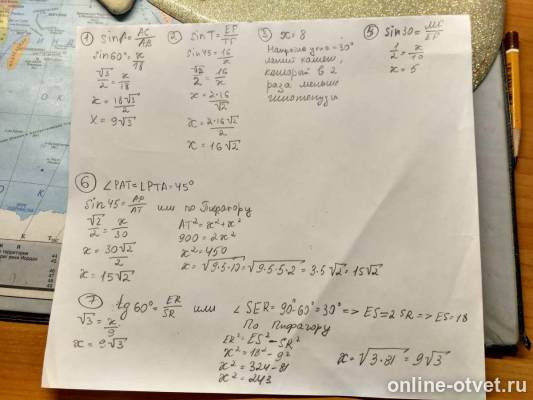 ① sin P = AC/AB
sin 60° = x/18
√3/2 = x/18
x = 18√3/2
x = 9√3
② sin T = EF/TF
sin 45 = 16/x
√2/2 = 16/x
x = 2·16/√2
x = 2·16√2/2
x = 16√2
③ x = 8
Напротив угла = 30°
лежит катет,
который в 2
раза меньше
гипотенузы
⑤ sin 30 =
1/2 = x/10
x = 5
⑥ ∠PAT = ∠PTA = 45°
sin 45 = AP/AT или по Пифагору
√2/2 = x/30
x = 30√2/2
x = 15√2
AT² = x² + x²
900 = 2x²
x² = 450
x = √9·5·10 = √9·5·5·2 = 3·5√2 = 15√2
⑦ tg 60° = ER/SR или ∠SER = 90° - 60° = 30° => ES = 2SR => ES = 18
√3 = x/9
x = 9√3
По Пифагору
ER² = ES² - SR²
x² = 18² - 9²
x² = 324 - 81
x² = 243
x = √3·81 = 9√3
online-otvet.ru